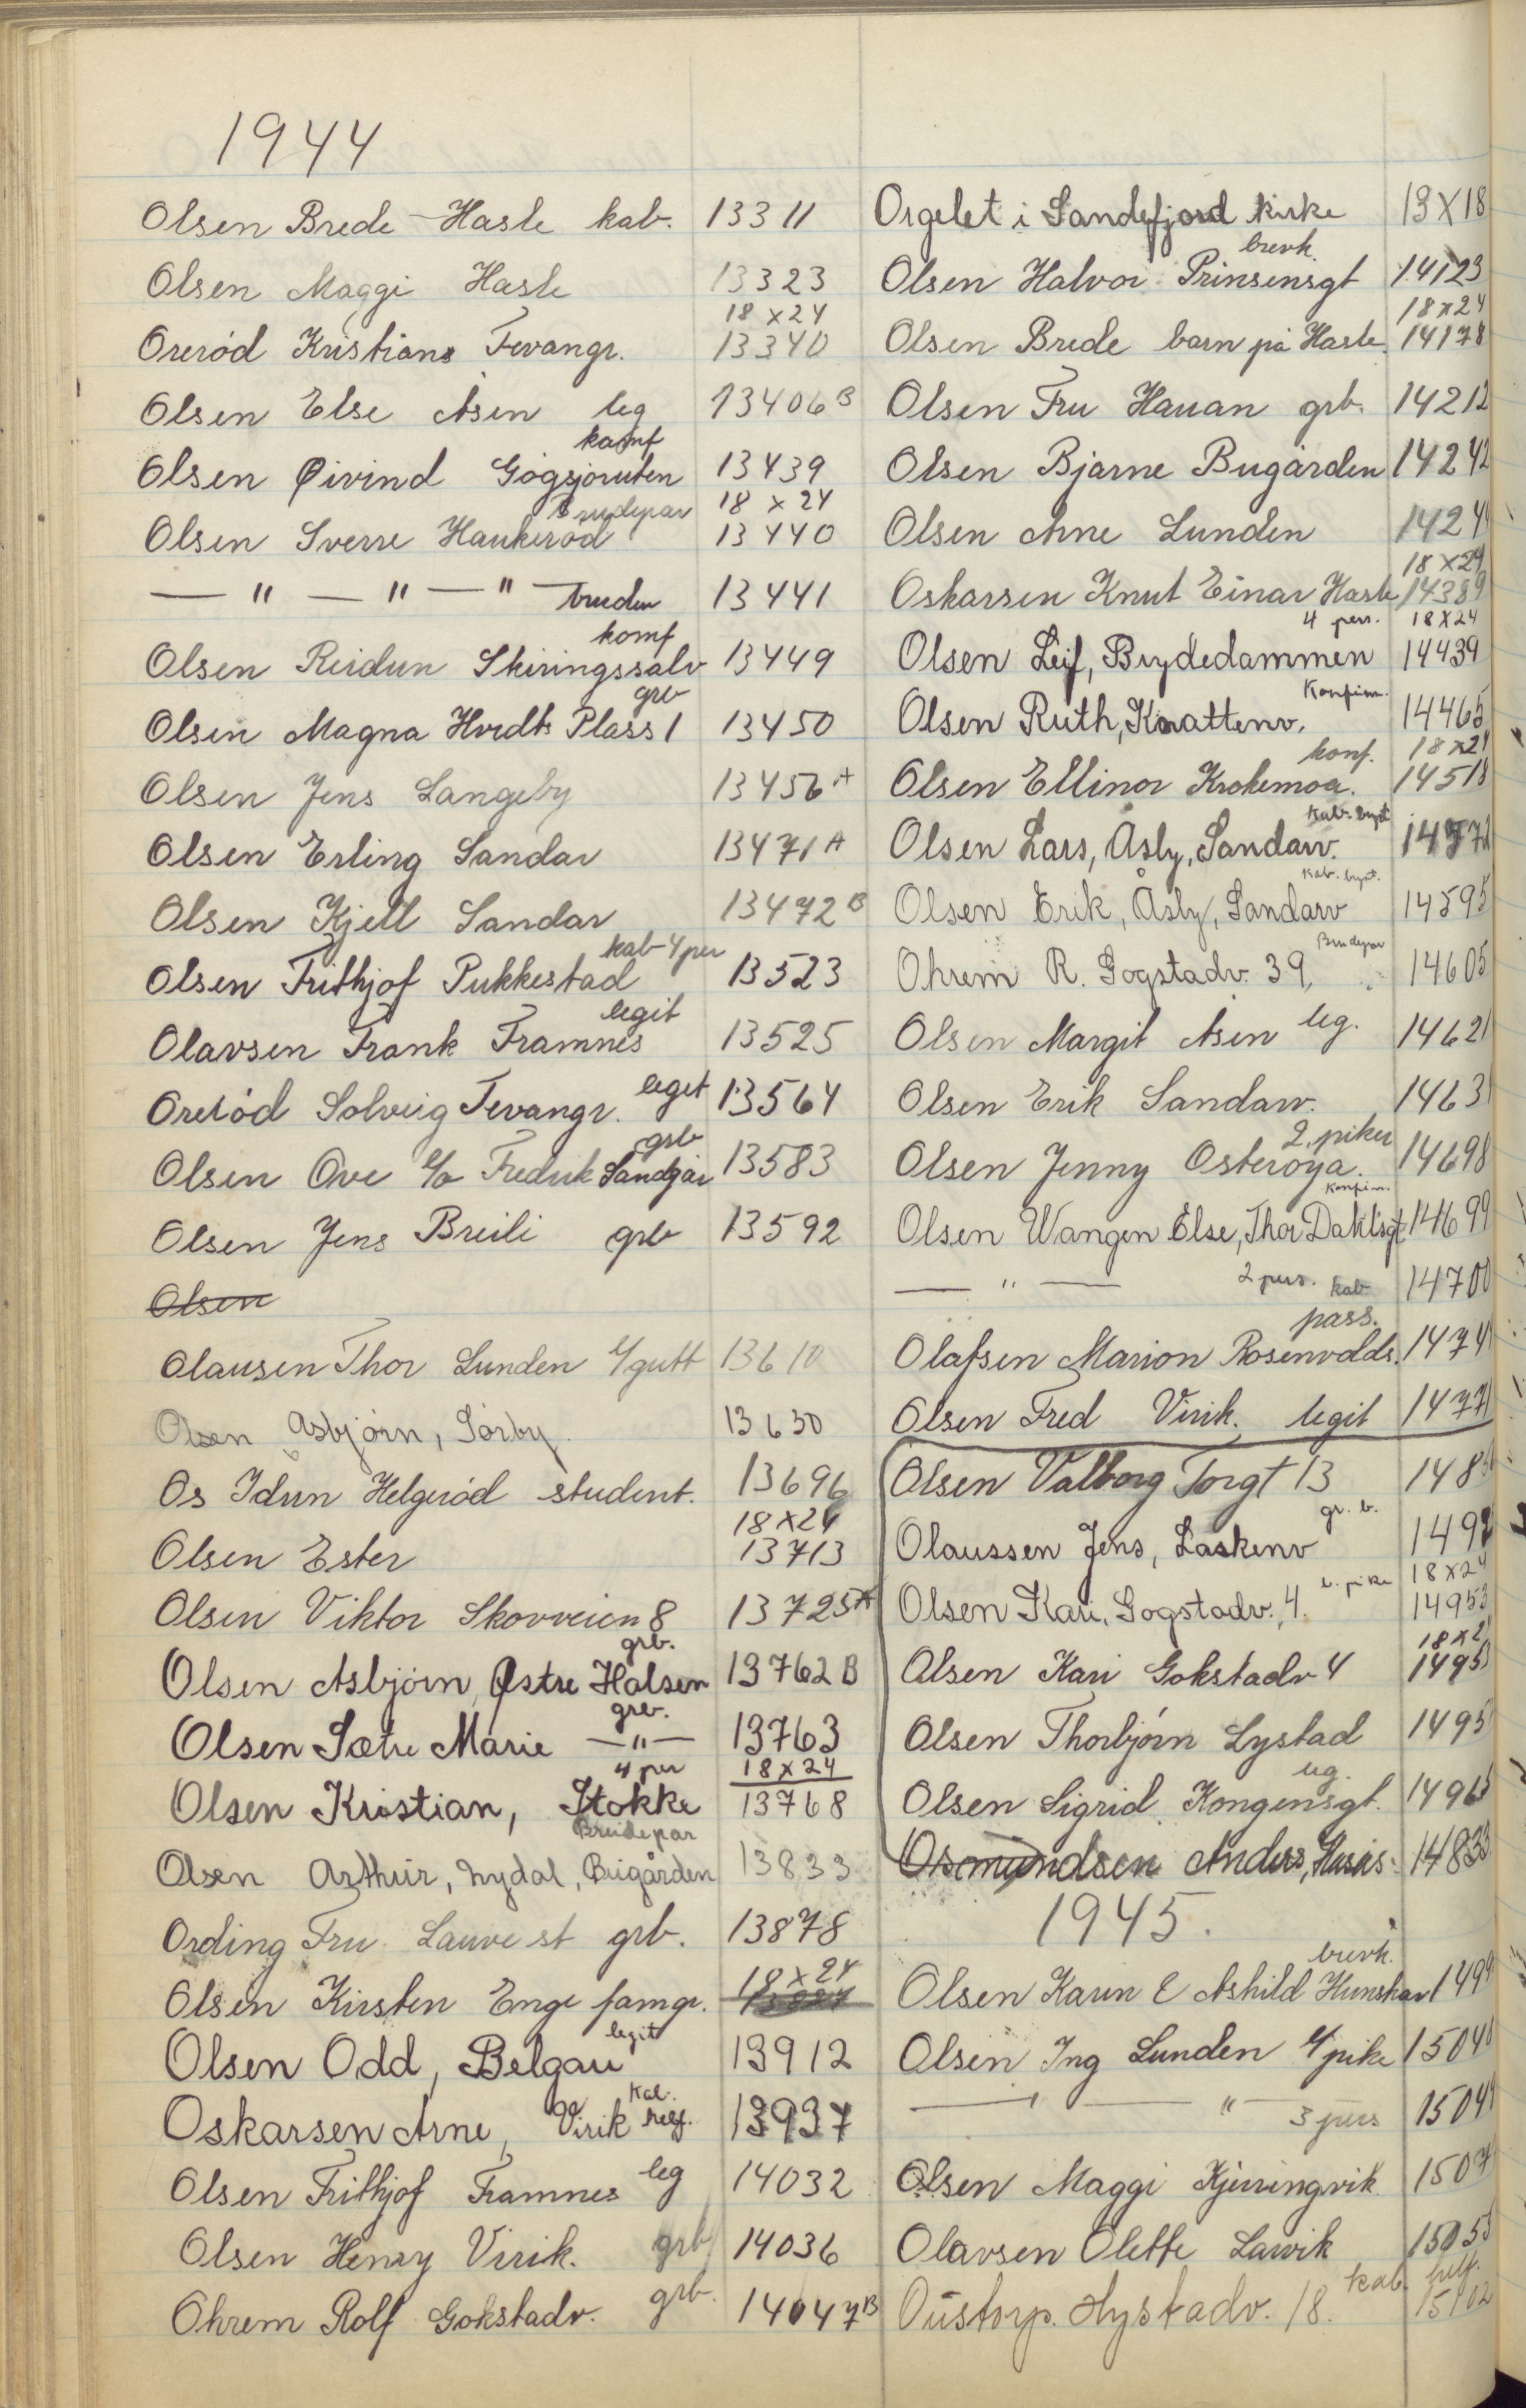 1944
Olsen Brede Hasle kab. 13311
Olsen Maggi Hasle 13323
18 x 24
Orerød Kristians Tevangr. 13340
Olsen Else Åsen leg 13406 B
konf
Olsen Øivind Gogsjøruten 13439
Brudepar 18 x 24
Olsen Sverre Haukerød 13440
— " — " — " — bruden 13441
konf
Olsen Reidun Skiringssalv 13449
grb
Olsen Magna Hvidts Plass 1 13450
Olsen Jens Langeby 13456 A
Olsen Erling Sandar 13471 A
Olsen Kjell Sandar 13472 B
kab 4 per
Olsen Frithjof Pukkestad 13523
legit
Olavsen Frank Framnes 13525
Orerød Solveig Tevangr. legit 13564
grb
Olsen Ove c/o Fredrik Sandgår 13583
Olsen Jens Breili grb 13592
Olsen
Olausen Thor Lunden 1/gutt 13610
Olsen Asbjørn, Sørby 13630
Os Idun Helgerød student. 13696
18x24
Olsen Ester 13713
Olsen Viktor Skovveien 8 13725 A
grb.
Olsen Asbjørn, Østre Halsen 13762 B
grb.
Olsen Sætre Marie — " — 13763
4 per 18x24
Olsen Kristian, Stokke 13768
Brudepar
Olsen Arthur, Nydal, Bugården 13833
Ording Fru Lauve st grb. 13878
18x24
Olsen Kirsten Enge famgr.
legit
Olsen Odd, Belgau 13912
Kab.
Oskarsen Arne, Virik helf. 13937
Olsen Frithjof Framnes leg 14032
Olsen Henry Virik. grb 14036
Ohrem Rolf Gokstadv. grb. 14047 B
Orgelet i Sandefjord kirke 13X18
brevk.
Olsen Halvor Prinsensgt 14123
18x24
Olsen Brede barn på Hasle 14178
Olsen Fru Hauan grb. 14212
Olsen Bjarne Bugården 14242
Olsen Arne Lunden 1424
18x24
Oskarsen Knut Einar Hasle 14389
4 pers. 18X24
Olsen Leif, Brydedammen 14439
Konfirm.
Olsen Ruth, Knattenv. 14465
konf. 18x24
Olsen Ellinor Krokemoa. 14518
Kab. bryst
Olsen Lars, Åsly, Sandarv. 14572
Kab. bryst.
Olsen Erik, Åsly, Sandarv 14595
Brudepar
Ohrem R. Gogstadv. 39, 14605
Olsen Margit Åsen leg. 14621
Olsen Erik Sandarv. 1463
2 piker
Olsen Jenny Østerøya. 14698
Konfirm.
Olsen Wangen Else, Thor Dahlsgt 14699
— " — 2 pers. kab 14700
pass.
Olafsen Marion Rosenvolds. 1474
Olsen Fred Virik. legit 1477
Olsen Valborg Torgt 13 148
gr. b.
Olaussen Jens, Laskenv 1492
l. pike 18x24
Olsen Kari, Gogstadv. 4. 14953
18x2
Olsen Kari Gokstadv 4 1495
Olsen Thorbjørn Lystad 1495
leg.
Olsen Sigrid Kongensgt. 1496
Osmundsen Anders, Husås 14833
1945.
brevk.
Olsen Karin & Åshild Hunskar 149
Olsen Ing Lunden 1/pike 1504
— " — " — 3 pers 1504
Olsen Maggi Kjerringvik 1507
Olavsen Olette Larvik 1505
kab. helf.
Oustorp. Nystadv. 18. 15102